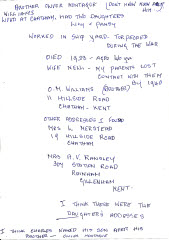 BROTHER OLIVER MONTAGUE (DON'T KNOW HOW
WILLIAMS HIM)
LIVED AT CHATHAM, HAD TWO DAUGHTERS
& DAISY
WORKED IN SHIP YARD. TORPEDOED
DURING THE WAR
DIED 1953 - AGED 60
WIFE NELL - MY PARENTS LOST
CONTACT WITH THEM
BY 1960
O. M. WILLIAMS (BROTHER)
11 HILLSIDE ROAD
CHATHAM - KENT
OTHER ADDRESSES I FOUND
MRS L. MERSTEAD
19 HILLSIDE ROAD
CHATHAM
MRS B. V. RANSLEY
ROAD
RAINHAM
GILLENHAM
KENT.
I THINK THESE WERE THE
DAUGHTER'S ADDRESSES
I THINK CHARLES NAMED HIS SON AFTER HIS
BROTHER - OLIVER MONTAGUE